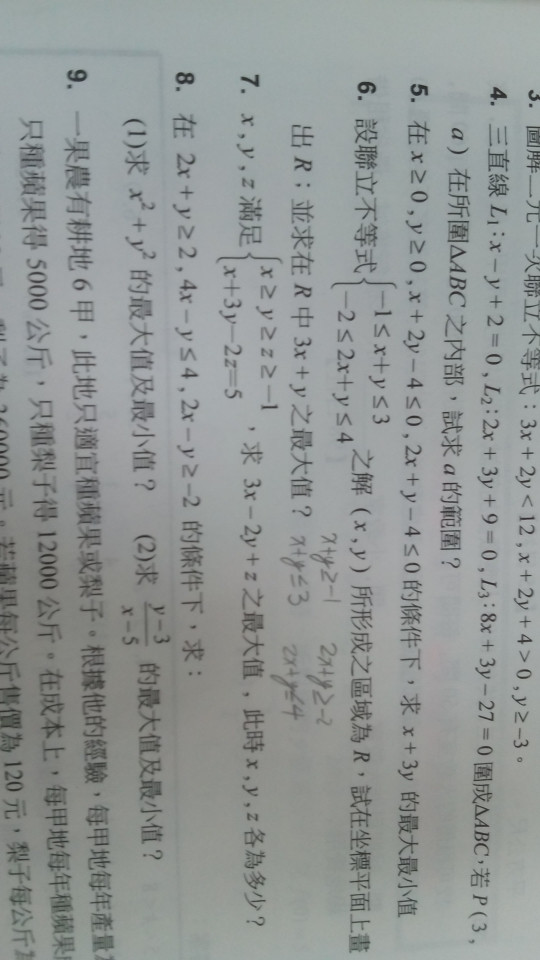 3. 圖解二元一次聯立不等式:3x+2y<12,x+2y+4>0,y≥-3。
4. 三直線 L₁:x-y+2=0,L₂:2x+3y+9=0,L₃:8x+3y-27=0 圍成ΔABC,若 P(3,
a)在所圍ΔABC 之內部,試求 a 的範圍?
5. 在 x≥0,y≥0,x+2y-4≤0,2x+y-4≤0 的條件下,求 x+3y 的最大最小值
6. 設聯立不等式{-1≤x+y≤3
-2≤2x+y≤4 之解(x,y)所形成之區域為 R,試在坐標平面上畫
出 R;並求在 R 中 3x+y 之最大值?
x+y≥-1 2x+y≥-2
x+y≤3 2x+y≤4
7. x,y,z 滿足{x≥y≥z≥-1
x+3y-2z=5 ,求 3x-2y+z 之最大值,此時 x,y,z 各為多少?
8. 在 2x+y≥2,4x-y≤4,2x-y≥-2 的條件下,求:
(1)求 x²+y² 的最大值及最小值? (2)求 (y-3)/(x-5) 的最大值及最小值?
9. 一果農有耕地 6 甲,此地只適宜種蘋果或梨子。根據他的經驗,每甲地每年產量
只種蘋果得 5000 公斤,只種梨子得 12000 公斤。在成本上,每甲地每年種蘋果
梨子為 360000 元。若蘋果每公斤售價為 120 元,梨子每公斤